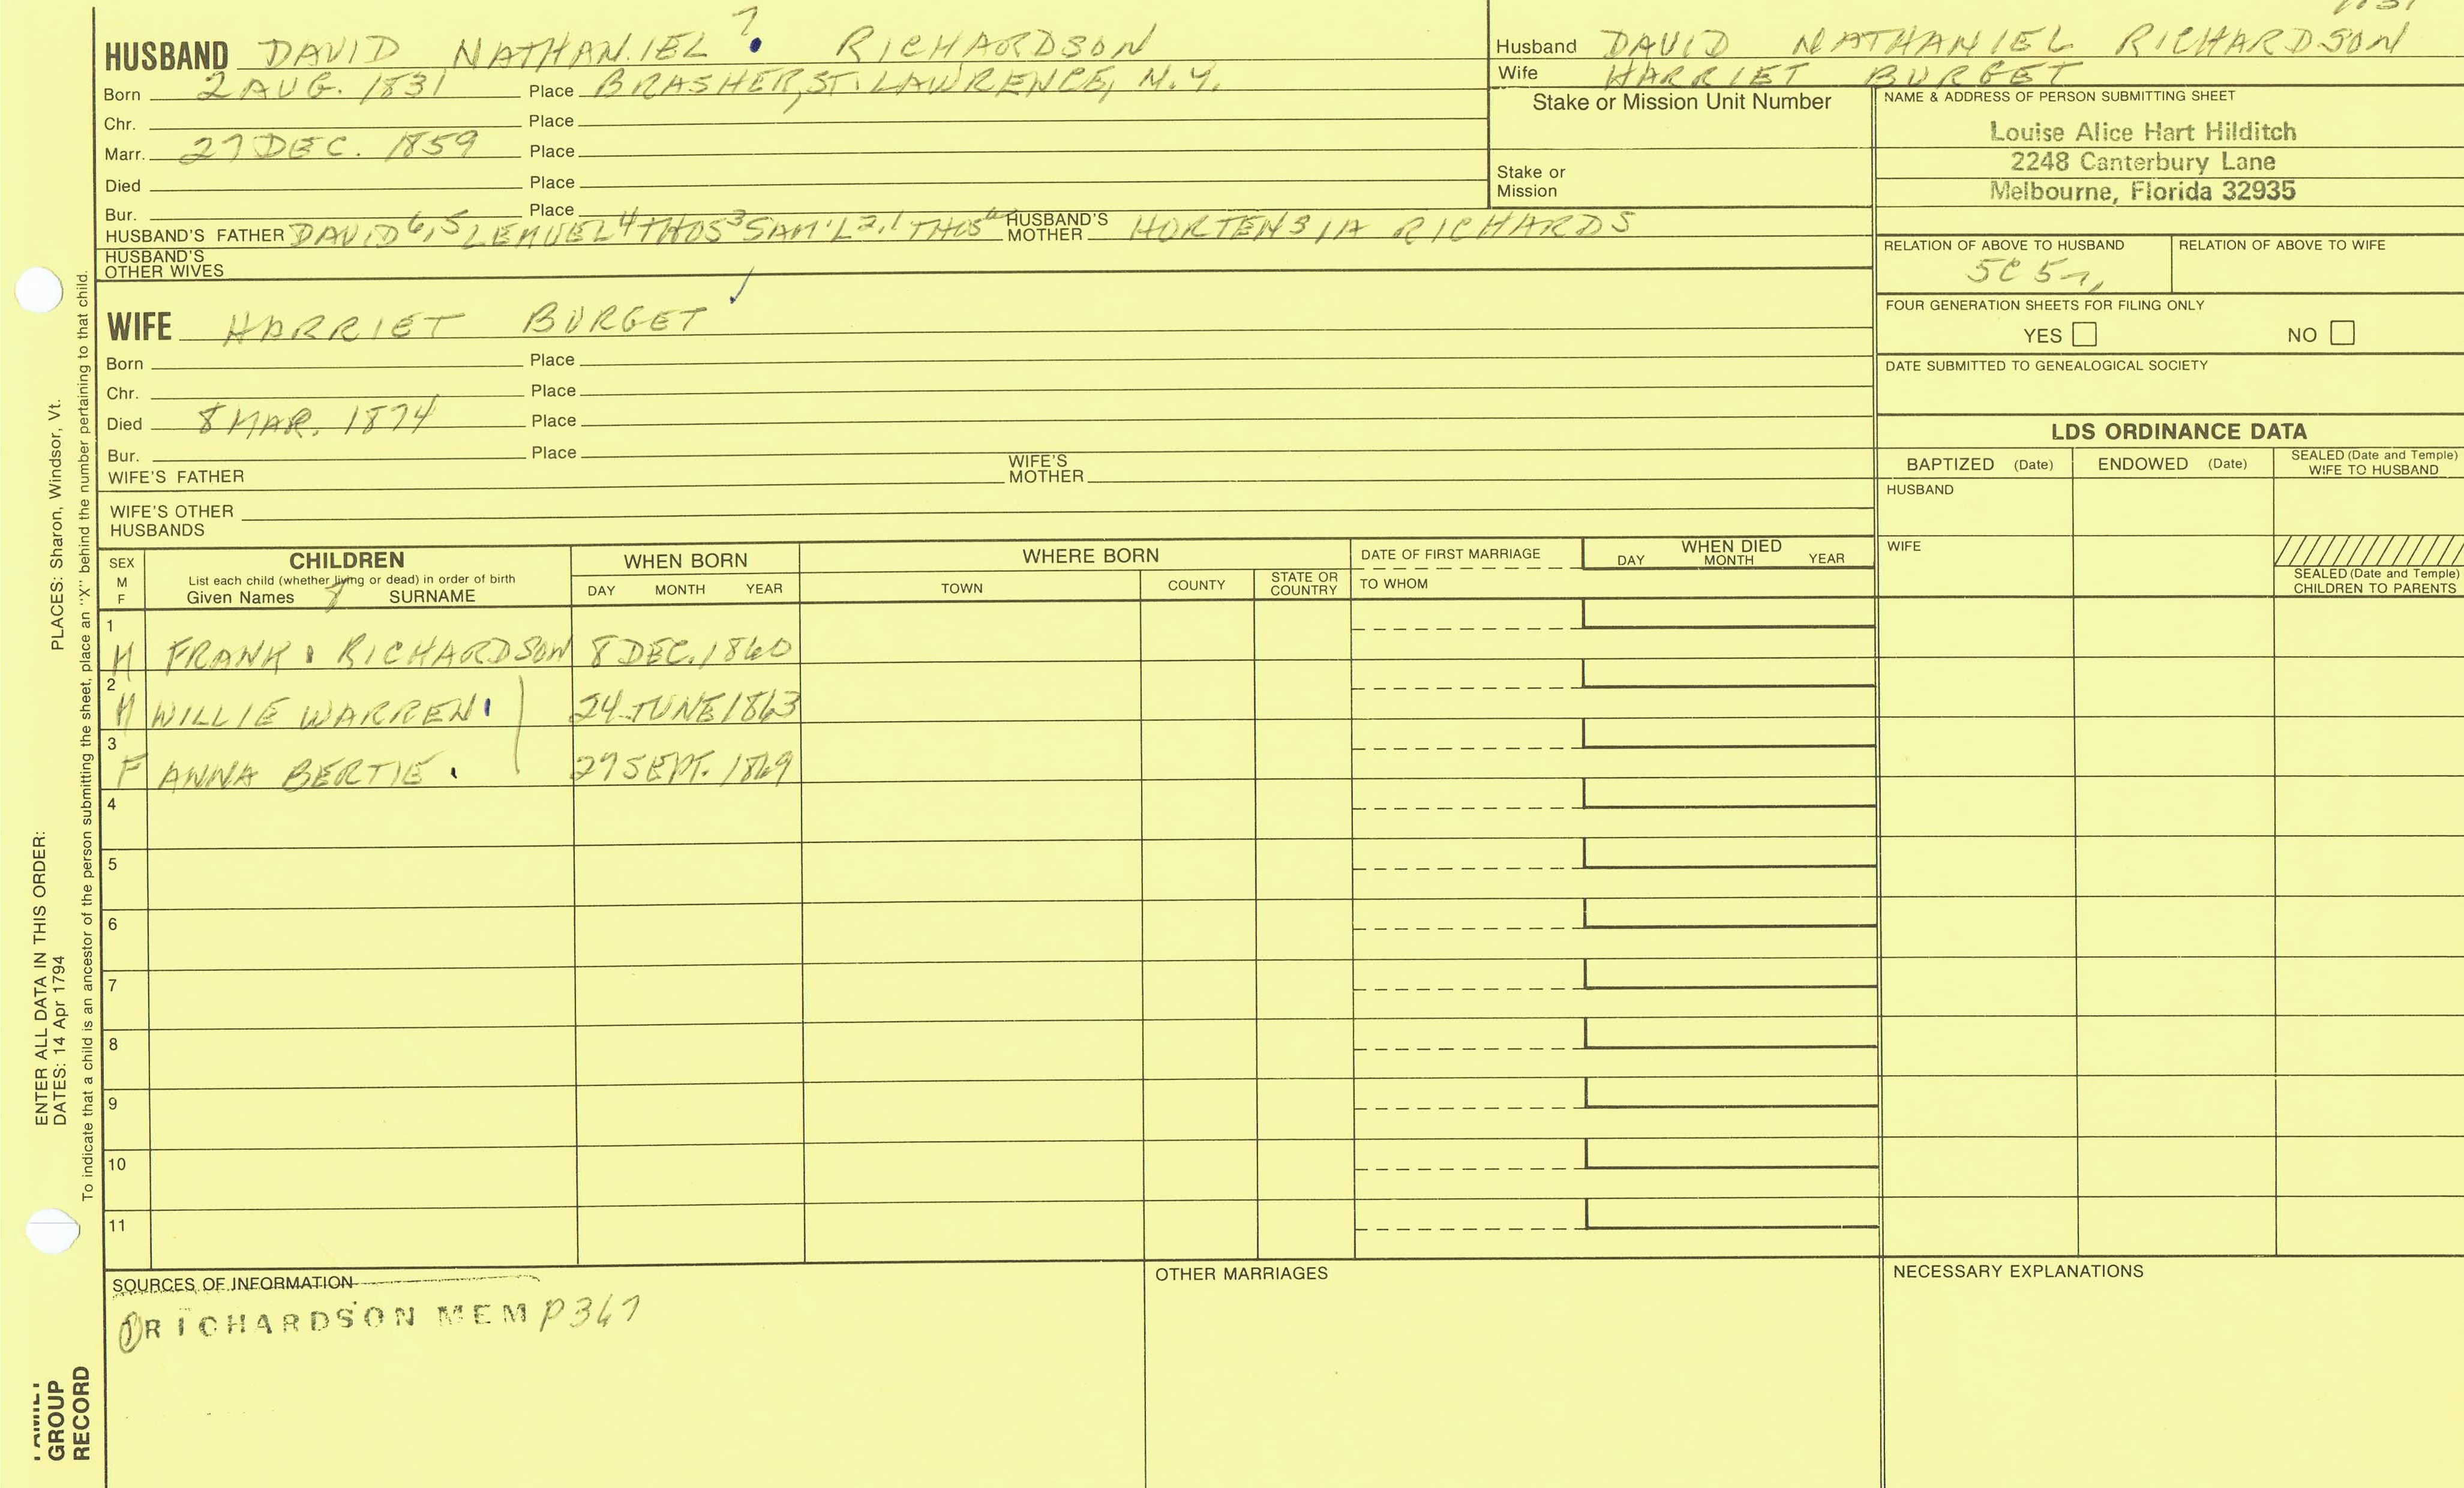 7
HUSBAND DAVID NATHANIEL RICHARDSON
Born 2 AUG. 1831 Place BRASHER, ST. LAWRENCE, N.Y.
Chr. Place
Marr. 27 DEC. 1859 Place
Died Place
Bur. Place
HUSBAND'S FATHER DAVID 6,5 LEMUEL 4 THOS 3 SAM'L 2,1 THOS HUSBAND'S MOTHER HORTENSIA RICHARDS
HUSBAND'S OTHER WIVES
WIFE HARRIET BURGET
Born Place
Chr. Place
Died 8 MAR. 1874 Place
Bur. Place
WIFE'S FATHER WIFE'S MOTHER
WIFE'S OTHER HUSBANDS
Husband DAVID NATHANIEL RICHARDSON
Wife HARRIET BURGET
Stake or Mission Unit Number
Stake or
Mission
NAME & ADDRESS OF PERSON SUBMITTING SHEET
Louise Alice Hart Hilditch
2248 Canterbury Lane
Melbourne, Florida 32935
RELATION OF ABOVE TO HUSBAND RELATION OF ABOVE TO WIFE
5C 5r
FOUR GENERATION SHEETS FOR FILING ONLY
YES NO
DATE SUBMITTED TO GENEALOGICAL SOCIETY
LDS ORDINANCE DATA
BAPTIZED (Date) ENDOWED (Date) SEALED (Date and Temple) WIFE TO HUSBAND
HUSBAND
WIFE
SEALED (Date and Temple)
CHILDREN TO PARENTS
SEX M F CHILDREN WHEN BORN WHERE BORN DATE OF FIRST MARRIAGE WHEN DIED
List each child (whether living or dead) in order of birth
Given Names 8 SURNAME DAY MONTH YEAR TOWN COUNTY STATE OR COUNTRY TO WHOM DAY MONTH YEAR
1 M FRANK RICHARDSON 8 DEC. 1860
2 M WILLIE WARREN 24 JUNE 1863
3 F ANNA BERTIE 27 SEPT. 1869
4
5
6
7
8
9
10
11
SOURCES OF INFORMATION
1 RICHARDSON MEM P367
OTHER MARRIAGES
NECESSARY EXPLANATIONS
ENTER ALL DATA IN THIS ORDER:
DATES: 14 Apr 1794 PLACES: Sharon, Windsor, Vt.
To indicate that a child is an ancestor of the person submitting the sheet, place an "X" behind the number pertaining to that child.
FAMILY
GROUP
RECORD